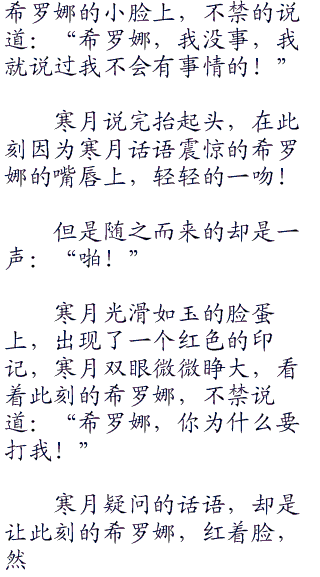 希罗娜的小脸上，不禁的说
道：“希罗娜，我没事，我
就说过我不会有事情的！”
寒月说完抬起头，在此
刻因为寒月话语震惊的希罗
娜的嘴唇上，轻轻的一吻！
但是随之而来的却是一
声：“啪！”
寒月光滑如玉的脸蛋
上，出现了一个红色的印
记，寒月双眼微微睁大，看
着此刻的希罗娜，不禁说
道：“希罗娜，你为什么要
打我！”
寒月疑问的话语，却是
让此刻的希罗娜，红着脸，
然